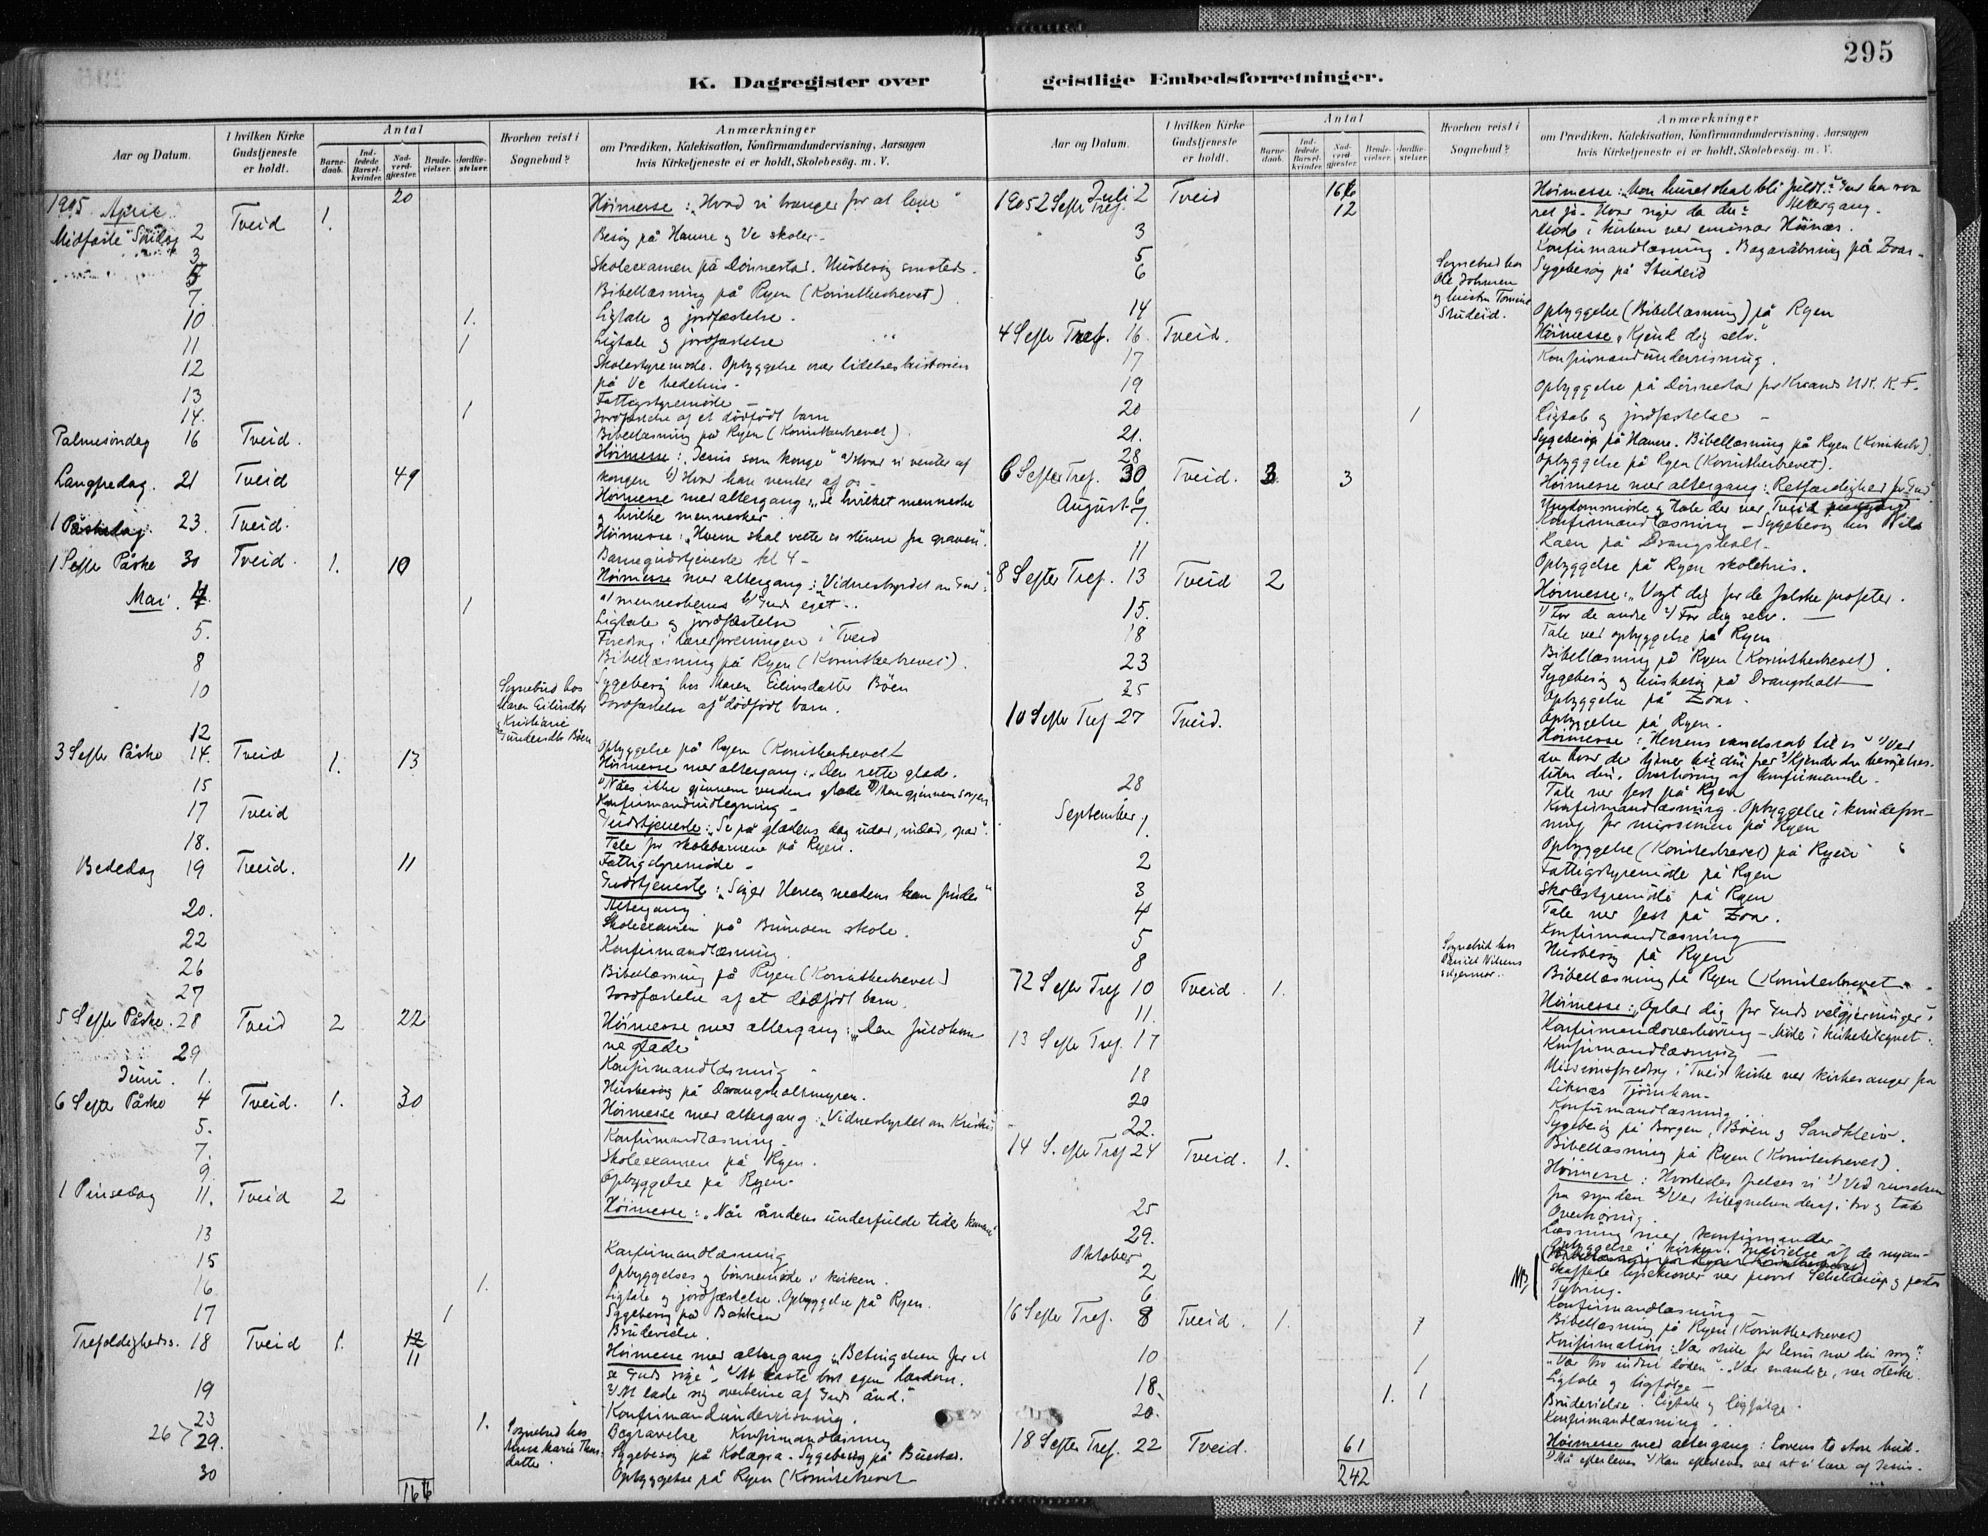 295
K. Dagregister over geistlige Embedsforretninger.
Aar og Datum.
I hvilken Kirke Gudstjeneste er holdt.
Antal
Barnedaab.
Indledede Barselkvinder.
Nadverdgjæster.
Brudevielser.
Jordfæstelser.
Hvorhen reist i Sognebud?
Anmærkninger
om Prædiken, Katekisation, Konfirmandundervisning, Aarsagen
hvis Kirketjeneste ei er holdt, Skolebesøg. m. V.
1905 April 20
Høimesse: „Hvad vi trænger for at leve"
Midfaste Søndag 2 Tveid 1.
Besøg på Hamre og Ve skoler.
3
5 Skoleexamen på Dønnestad. Husbesøg smsteds.
7. Bibellæsning på Ryen (Korintherbrevet)
10 1. Ligtale og jordfæstelse.
11 1 Ligtale og jordfæstelse
12 Skolestyremøde. Opbyggelse over lidelseshistorien
på Ve bedehus.
13 Fattigstyremøde
14. 1 Jordfæstelse af et dødfødt barn
Bibellæsning på Ryen (Korintherbrevet)
Palmesøndag 16 Tveid.
Høimesse: „Jesus som konge" 1/ Hvad vi venter af
kongen 2/ Hvad han venter af os
Langfredag. 21 Tveid 49
Høimesse med altergang: „Se hvilket menneske
og hvilke mennesker
1 Påskedag. 23. Tveid.
Høimesse: „Hvem skal vælte os stenen fra graven".
Barnegudstjeneste kl 4
1 S efter Påske 30 Tveid. 1. 10
Høimesse med altergang: „Vidnesbyrdet om Gud":
1/ menneskenes 2/ Guds eget.
Mai. 4 1 Ligtale og jordfæstelse
5. Foredrag i lærerforeningen i Tveid
Bibellæsning på Ryen (Korintherbrevet).
8 Sygebesøg hos Maren Eilivsdatter Bøen
10 Jordfæstelse af dødfødt barn.
Sognebud hos
Maren Eilivsdtr
og Kristiane
Gundersdtr Bøen
12 Opbyggelse på Ryen (Korintherbrevet
3 S efter Påske 14. Tveid 1. 13
Høimesse med altergang: „Den rette glæde.
1/ Nåes ikke gjennem verdens glæde 2/ kun gjennem sorgen
15 Konfirmandudlegning
17 Tveid Gudstjeneste: „Se på glædens dag udad, indad, opad".
Tale for skolebarnene på Ryen.
18. Fattigstyremøde
Bededag 19 Tveid. 11
Gudstjeneste: „Søger Herren medens han findes"
Altergang.
20. Skoleexamen på Brunoen skole.
22 Konfirmandlæsning.
26 Bibellæsning på Ryen (Korintherbrevet)
27 Jordfæstelse af et dødfødt barn.
5 S efter Påske. 28 Tveid 2 22
Høimesse med altergang: „Den fuldkom
ne glæde"
29 Konfirmandlæsning
Juni. 1. Husbesøg på Drangsholtmyren.
6 S efter Påske 4 Tveid. 1. 30
Høimesse med altergang: „Vidnesbyrdet om Kristus
5. Konfirmandlæsning
7. Skoleexamen på Ryen.
9. Opbyggelse på Ryen.
1 Pinsedag 11. Tveid 2
Høimesse: „Når åndens underfulde tider kommer"
13 Konfirmandlæsning
15 Opbyggelses og bønnemøde i kirken.
16 1. Ligtale og jordfæstelse. Opbyggelse på Ryen.
17 1 Sygebesøg på Bakken
Brudevielse.
Trefoldigheds. 18 Tveid 1. 12
11
Høimesse med altergang: „Betingelsen for at
se Guds rige". 1/ At kaste bort egen lærdom.
2/ At lade sig overbevise af Guds ånd."
19 Konfirmandundervisning.
23 1. Begravelse Konfirmandlæsning
26 29. Sygebesøg på Kolægra. Sygebesøg på Bustad.
Sognebud hos
Anne Marie Thors
datter
30 Opbyggelse på Ryen (Korintherbrevet
166
Aar og Datum.
I hvilken Kirke Gudstjeneste er holdt.
Antal
Barnedaab.
Indledede Barselkvinder.
Nadverdgjæster.
Brudevielser.
Jordfæstelser.
Hvorhen reist i Sognebud?
Anmærkninger
om Prædiken, Katekisation, Konfirmandundervisning, Aarsagen
hvis Kirketjeneste ei er holdt, Skolebesøg. m. V.
1905 2 S efter Tref. Juli 2 Tveid 166
12
Høimesse: „Mon huset skal bli fuldt?" Gud har sva
ret ja. Hvad siger da du? Altergang.
Møde i kirken ved emissær Høinæs.
3 Konfirmandlæsning. Bazaråbning på Zoar.
5
6 Sygebesøg på Studeid
Sognebud hos
Ole Johnsen
og hustru Tomine
Studeid.
14 Opbyggelse (Bibellæsning) på Ryen
4 S efter Tref. 16 Tveid. Høimesse „Kjend dig selv".
17 Konfirmandundervisning.
19 Opbyggelse på Dønnestad for Krsands Udk. K. F.
20 1 Ligtale og jordfæstelse
21. Sygebesøg på Hamre. Bibellæsning på Ryen (Korintherb.)
28 Opbyggelse på Ryen (Korintherbrevet).
6 S efter Tref. 30 Tveid. 3 3
Høimesse med altergang: „Retfærdighed for Gud".
August 6 Ungdomsmøde og Tale der ved Tveid
7. Konfirmandlæsning – Sygebesøg hos Nils
Haen på Drangsholt.
11 Opbyggelse på Ryen skolehus.
8 S efter Tref. 13 Tveid 2
Høimesse: „Vogt dig for de falske profeter.
1/ For de andre 2/ For dig selv.
15. Tale ved opbyggelse på Ryen
18 Bibellæsning på Ryen (Korintherbrevet)
23 Sygebesøg og husbesøg på Drangsholt
25 Opbyggelse på Zoar.
Opbyggelse på Ryen.
10 S efter Tref 27 Tveid.
Høimesse: „Herrens vendskab til os" 1/ Ved
du hvad der tjener til din fred 2/ Kjender du besøgelses
tiden din. Overhøring af konfirmander.
28 Tale ved fest på Ryen
September 1. Konfirmandlæsning. Opbyggelse i kvindefore
ning for missionen på Ryen
Opbyggelse (Korintherbrevet) på Ryen
2 Fattigstyremøde på Ryen
3 Skolestyremøde på Ryen
4 Tale ved fest på Zoar.
5 Konfirmandlæsning
8 Husbesøg på Ryen
Sognebud hos
Daniel Nilsens
Bibellæsning på Ryen (Korintherbrevet
12 S efter Tref 10 Tveid. 1.
Høimesse: „Oplad dig for Guds velgjerninger"
11. Konfirmandoverhøring – Møde i kirketilsynet.
13 S efter Tref. 17 Konfirmandlæsning
Missionsforedrag i Tveid kirke ved kirkesanger fra
Liknæs Tjørnhom
18 Konfirmandlæsning
20 Sygebesøg på Borgen, Bøen og Sandkleiv.
22. Bibellæsning på Ryen (Korintherbrevet).
14 S. efter Tref 24 Tveid. 1.
Høimesse: Hvorledes frelses vi 1/ Ved renselsen
fra synden 2/ Ved tilegnelsen deraf i tro og tak
25 Overhøring.
29. Læsning med konfirmander
Oktober 2 Opbyggelse i kirken. Indvielse af de nyan-
NB skaffede lysekroner ved provst Schelderup og pastor
Tybring.
6 Konfirmandlæsning
Bibellæsning på Ryen (Korintherbrevet)
16 S efter Tref. 8 Tveid. 1. 1
Konfirmation: „Vær stille for Jesus med din sorg".
„Vær tro indtil døden". „Vær mandige, vær stærke.
10 1 Ligtale og ligfølge
18. 1. 1 Brudevielse. Ligtale og ligfølge.
20. Konfirmandlæsning.
18 S efter Tref. 22 Tveid. 61
242
Høimesse med altergang: Lovens to store bud.
1/ Må efterleves 2/ Kan efterleves ved at vi lære af Jesus.